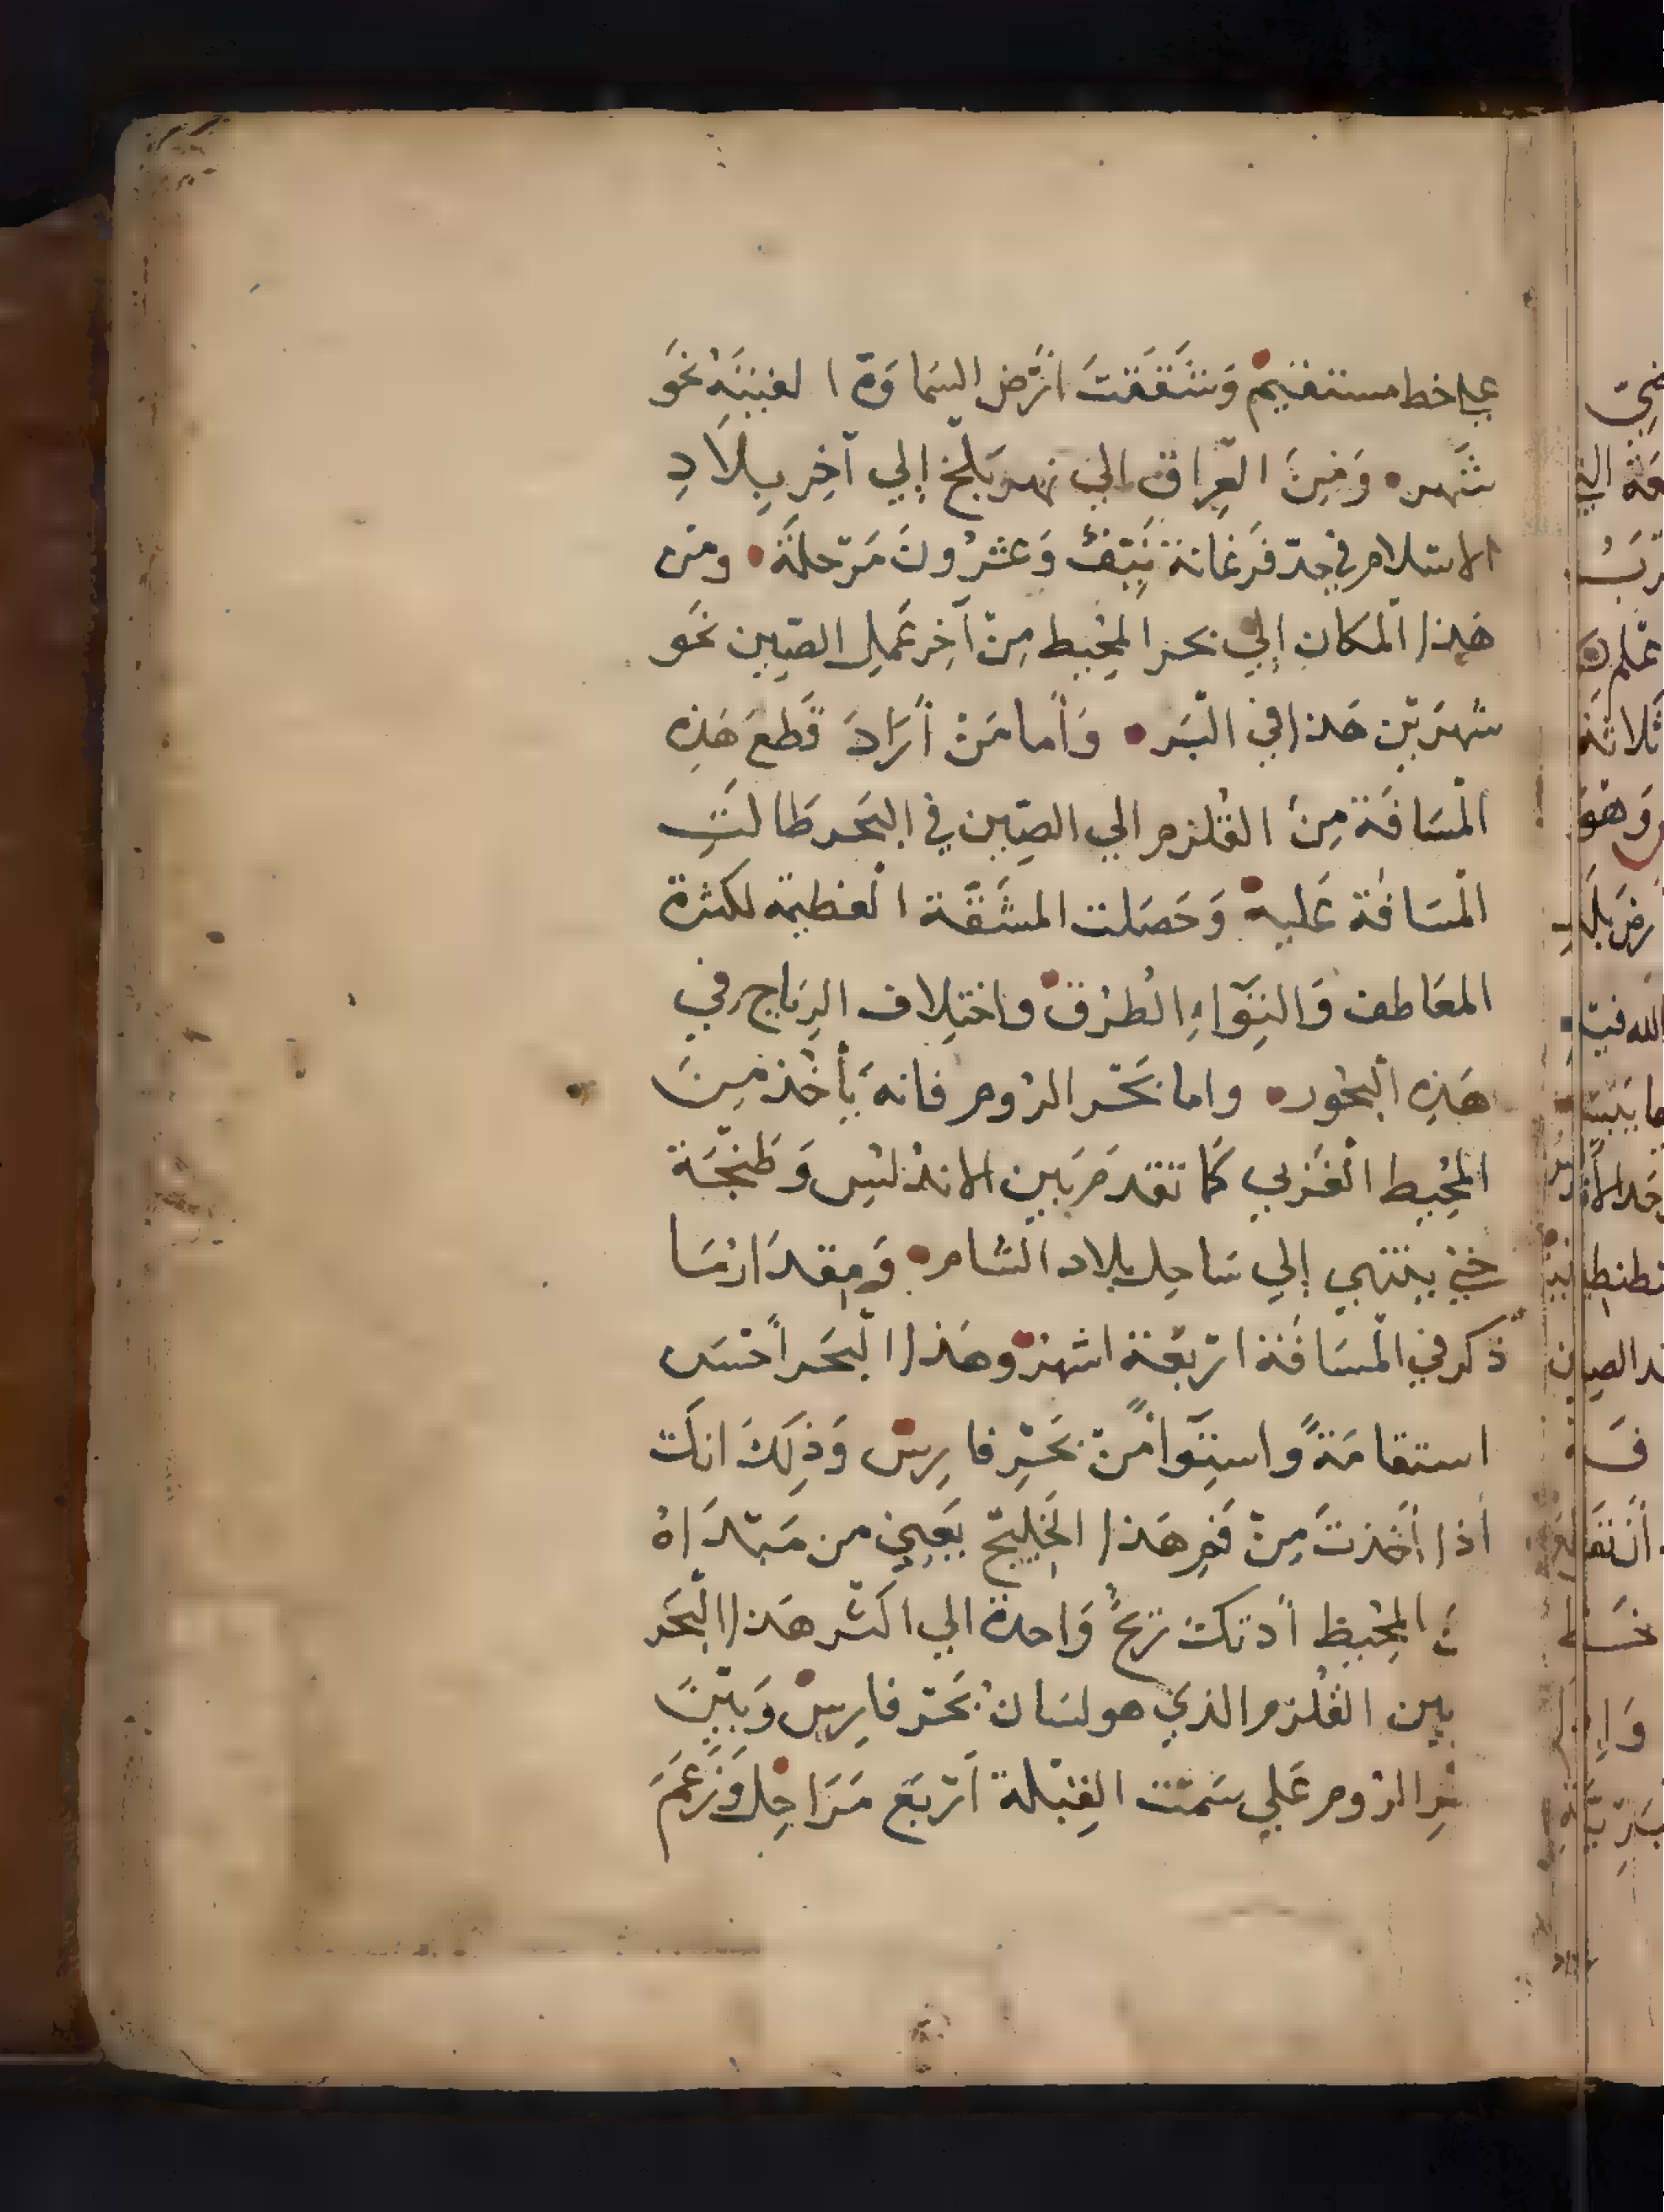 علي خط مستقيم وَشَقَقتَ ارْض السَماوَة الغبيَه نَحَو
شَهر وَمِنَ العِرَاق الي نهر بَلْخ إلي آخِرِ بِلَادِ
الاسلام في حد فرَغانة نَيّفٌ وَعشرُونَ مَرْحلَة ومن
هَذا المكان إلي بحر المحُيط مِنْ آخِر عَمَلِ الصّين نحَو
شهرَيْن هَذا في البَر وَأما مَنْ أرَادَ قَطعَ هَذِه
المسَافَة مِنَ القلزم الي الصّين في البَحر طَالَت
المسَافة عَليه وَحَصَلت المشَقَّة العظيمة لكثرة
المعَاطف وَالتِوَاءِ الطُرق واختِلاف الرِيَاح في
هَذِه البحُور واما بَحْر الرُوم فانهَ يَأخُذ مِنَ
المحُيِط الغَربي كمَا تقدمَ بَين الاندلسِ وَطَنْجَة
حَتي ينتهي إلي سَاحِل بلاد الشام وَمِقدَار مَا
ذكر في المسَافَة ارْبعَة اشهر وهَذا البَحر أحْسَن
استقامَةً واستِوَاً منْ بَحْرِ فارِس وَذلِكَ انكَ
اذا أخَذتَ مِنْ فَمِ هَذا الخَلِيج يَعِني من مَبْتدَاهُ
المحُيِط أدتكَ ريحٌ وَاحدة الي اكثر هَذا البَحَر
بين القُلزم الذي هو لسَانُ بَحْر فارِس وَبَيْنَ
الرُوم عَلي سَمْت القِبْلة أرْبَع مَرَاحِل وَزَعَمَ